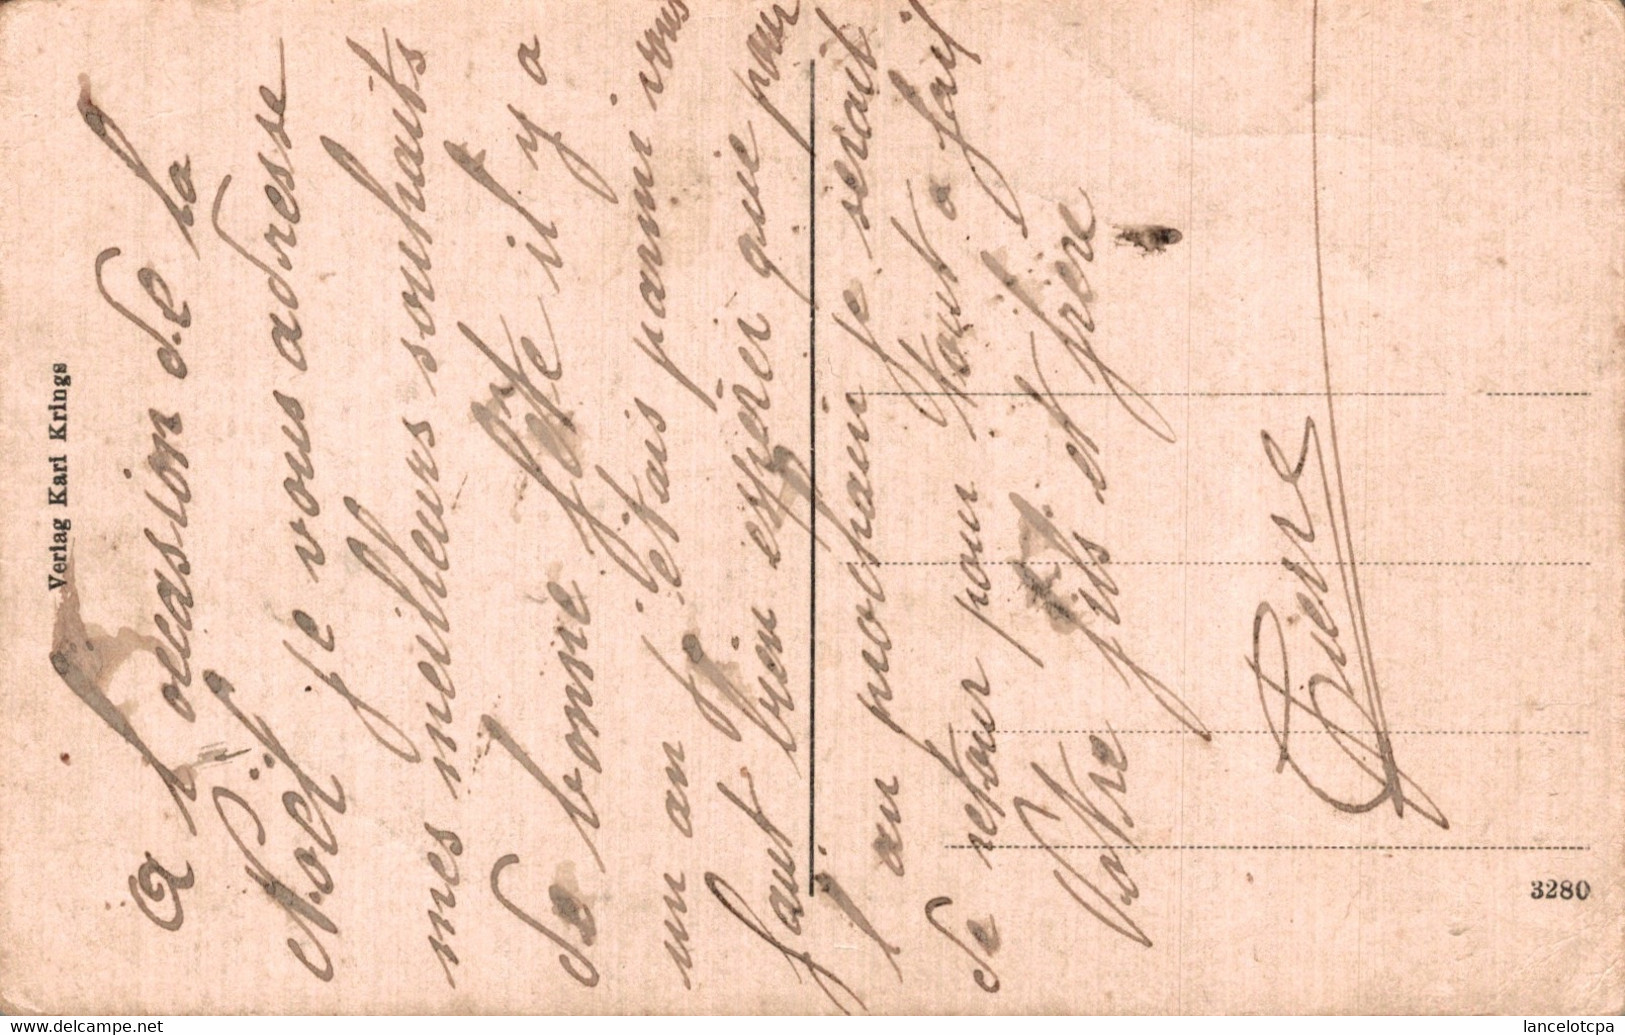 A l'occasion de la
Noël je vous adresse
mes meilleurs souhaits
de bonne fête il y a
un an j'étais parmi vous
faut bien espérer que pour
l'an prochain je serait
de retour pour tout a fait
Votre fils et frère
Pierre
Verlag Karl Krings
3280
lancelotcpa